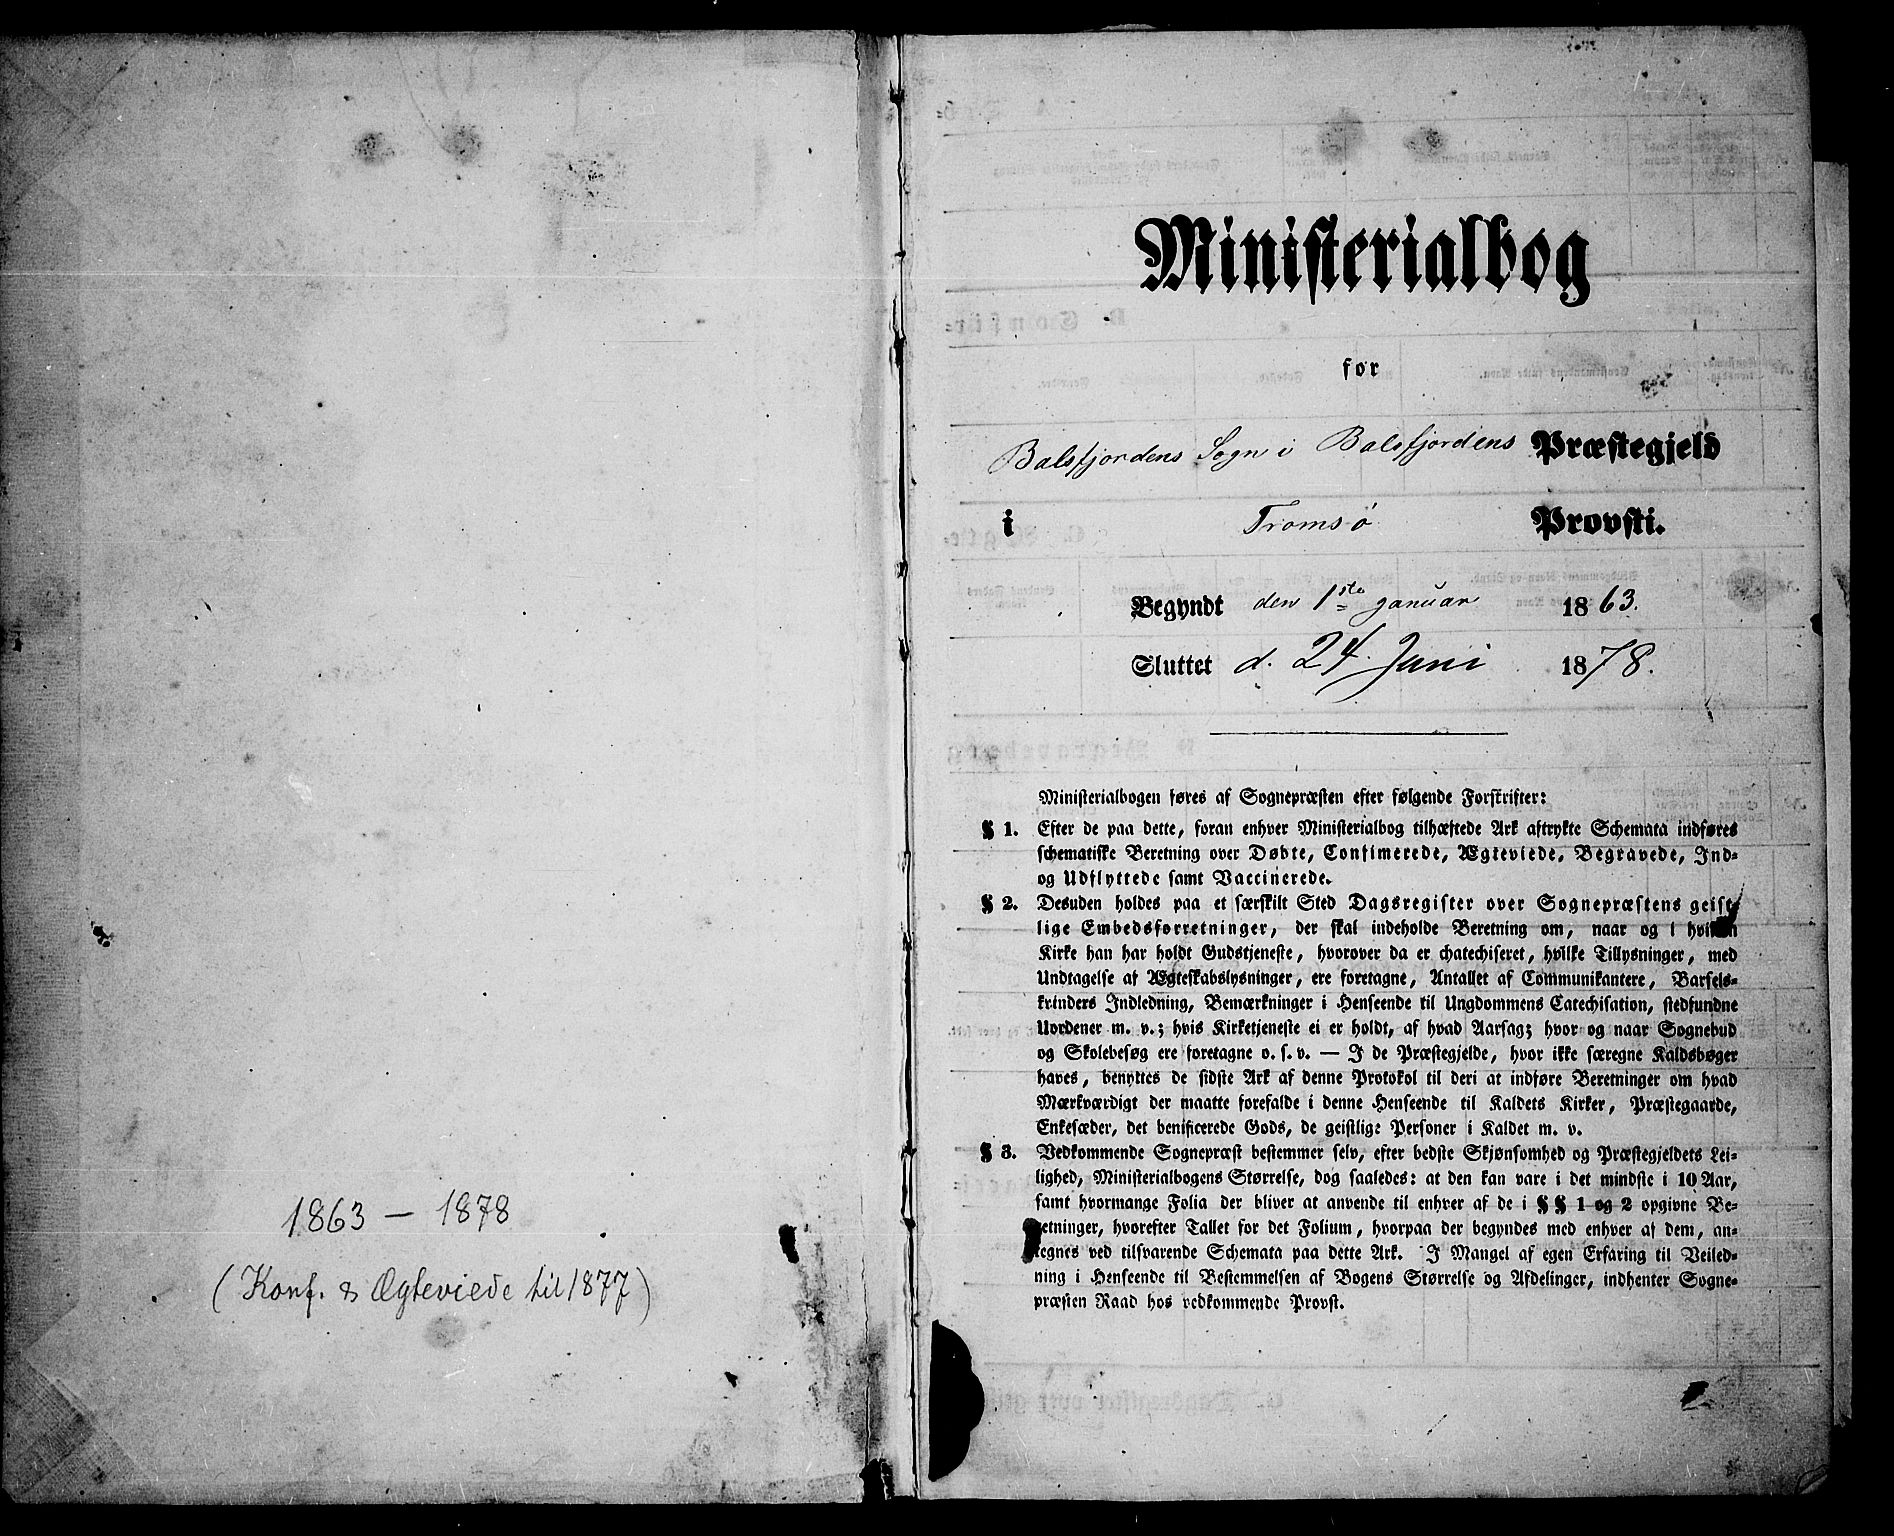 1863 — 1878
(Konf. & Ægteviede til 1877)
Ministerialbog
for
Balsfjordens Sogn i Balsfjordens Præstegjeld
i Tromsø Provsti.
Begyndt den 1ste Januar 1863.
Sluttet d. 24 Juni 1878.
Ministerialbogen føres af Sognepræsten efter følgende Forskrifter:
§ 1. Efter de paa dette, foran enhver Ministerialbog tilhæftede Ark aftrykte Schemata indføres
schematiske Beretning over Døbte, Confimerede, Ægteviede, Begravede, Ind-
og Udflyttede samt Vaccinerede.
§ 2. Desuden holdes paa et særskilt Sted Dagsregister over Sognepræstens geist-
lige Embedsforretninger, der skal indeholde Beretning om, naar og i hvilken
Kirke han har holdt Gudstjeneste, hvorover da er chatechiseret, hvilke Tillysninger, med
Undtagelse af Ægteskabslysninger, ere foretagne, Antallet af Communikantere, Barsels-
kvinders Indledning, Bemærkninger i Henseende til Ungdommens Catechisation, stedfundne
Uordener m. v.; hvis Kirketjeneste ei er holdt, af hvad Aarsag; hvor og naar Sognebud
og Skolebesøg ere foretagne o. s. v. — I de Præstegjelde, hvor ikke særegne Kaldsbøger
haves, benyttes de sidste Ark af denne Protokol til deri at indføre Beretninger om hvad
Mærkværdigt der maatte forefalde i denne Henseende til Kaldets Kirker, Præstegaarde,
Enkesæder, det benificerede Gods, de geistlige Personer i Kaldet m. v.
§ 3. Vedkommende Sognepræst bestemmer selv, efter bedste Skjønsomhed og Præstegjeldets Lei-
lighed, Ministerialbogens Størrelse, dog saaledes: at den kan vare i det mindste i 10 Aar,
samt hvormange Folia der bliver at anvende til enhver af de i §§ 1 og 2 opgivne Be-
retninger, hvorefter Tallet for det Folium, hvorpaa der begyndes med enhver af dem, an-
tegnes ved tilsvarende Schemata paa dette Ark. I Mangel af egen Erfaring til Veiled-
ning i Henseende til Bestemmelsen af Bogens Størrelse og Afdelinger, indhenter Sogne-
præsten Raad hos vedkommende Provst.